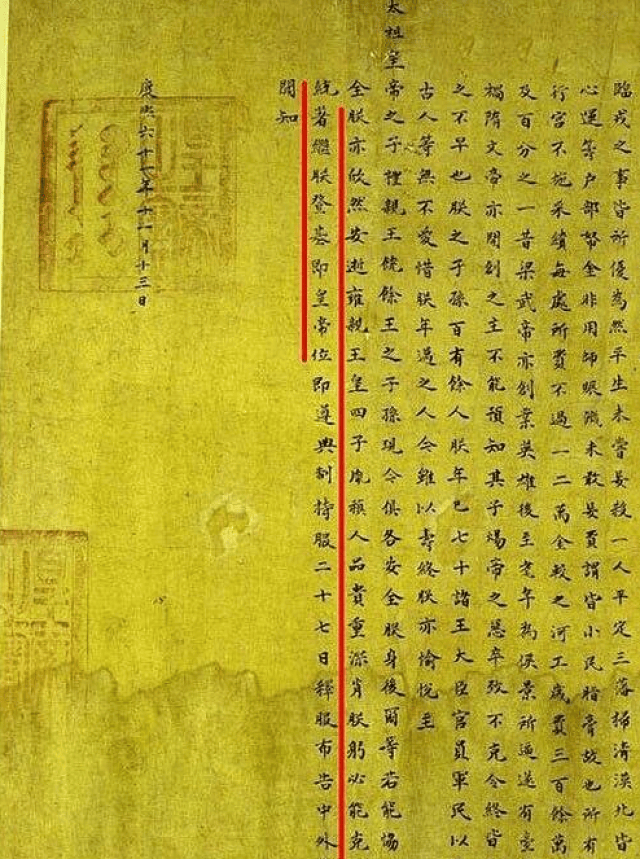 臨戎之事皆所優為然平生未嘗妄殺一人平定三藩掃清漠北皆
心運籌户部帑金非用師賑饑未敢妄費謂皆小民脂膏故也所有
行宫不施采繢每處所費不過一二萬金較之河工歲費三百餘萬
及百分之一昔梁武帝亦創業英雄後至耄年為侯景所逼遂有臺
禍隋文帝亦開創之主不能預知其子煬帝之惡卒致不克令終皆
之不早也朕之子孫百有餘人朕年已七十諸王大臣官員軍民以
古人等無不愛惜朕年邁之人今雖以壽終朕亦愉悅至
太祖皇帝之子禮親王饒餘王之子孫現今俱各安全朕身後爾等若能協
全朕亦欣然安逝雍親王皇四子胤禛人品貴重深肖朕躬必能克
統著繼朕登基即皇帝位即遵典制持服二十七日釋服布告中外
聞知
康熙六十一年十一月十三日